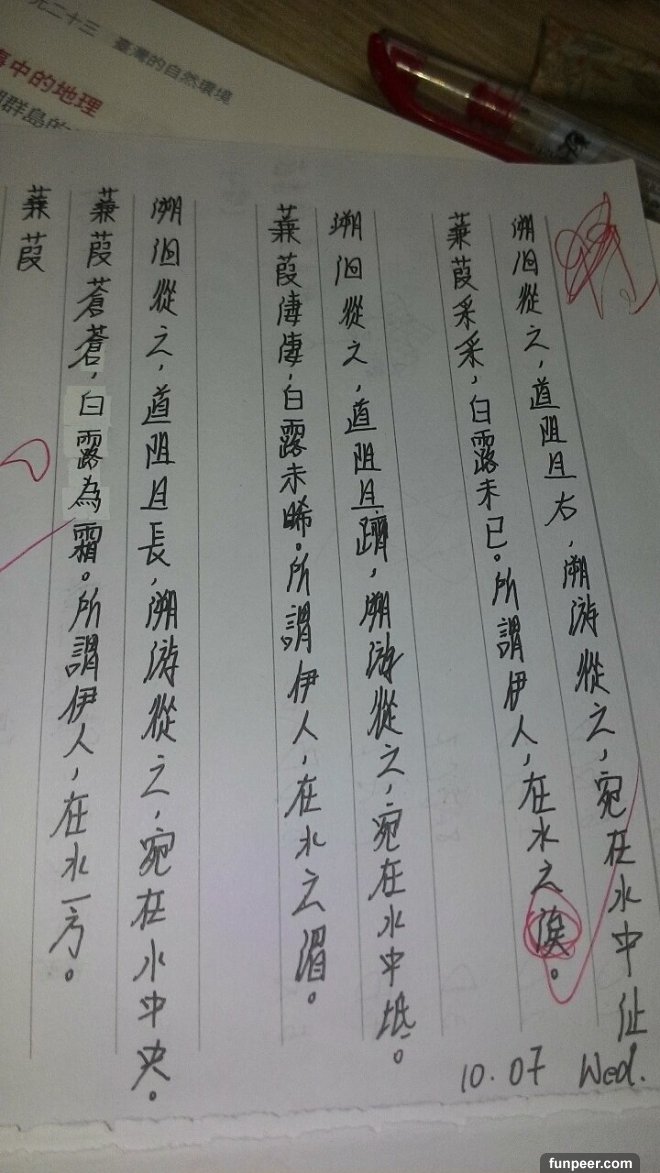 元二十三 臺灣的自然環境
中的地理
群島的
蒹葭
蒹葭蒼蒼，白露為霜。所謂伊人，在水一方。
溯洄從之，道阻且長，溯游從之，宛在水中央。
蒹葭淒淒，白露未晞。所謂伊人，在水之湄。
溯洄從之，道阻且躋，溯游從之，宛在水中坻。
蒹葭采采，白露未已。所謂伊人，在水之涘。
溯洄從之，道阻且右，溯游從之，宛在水中沚。
10.07 Wed.
funpeer.com